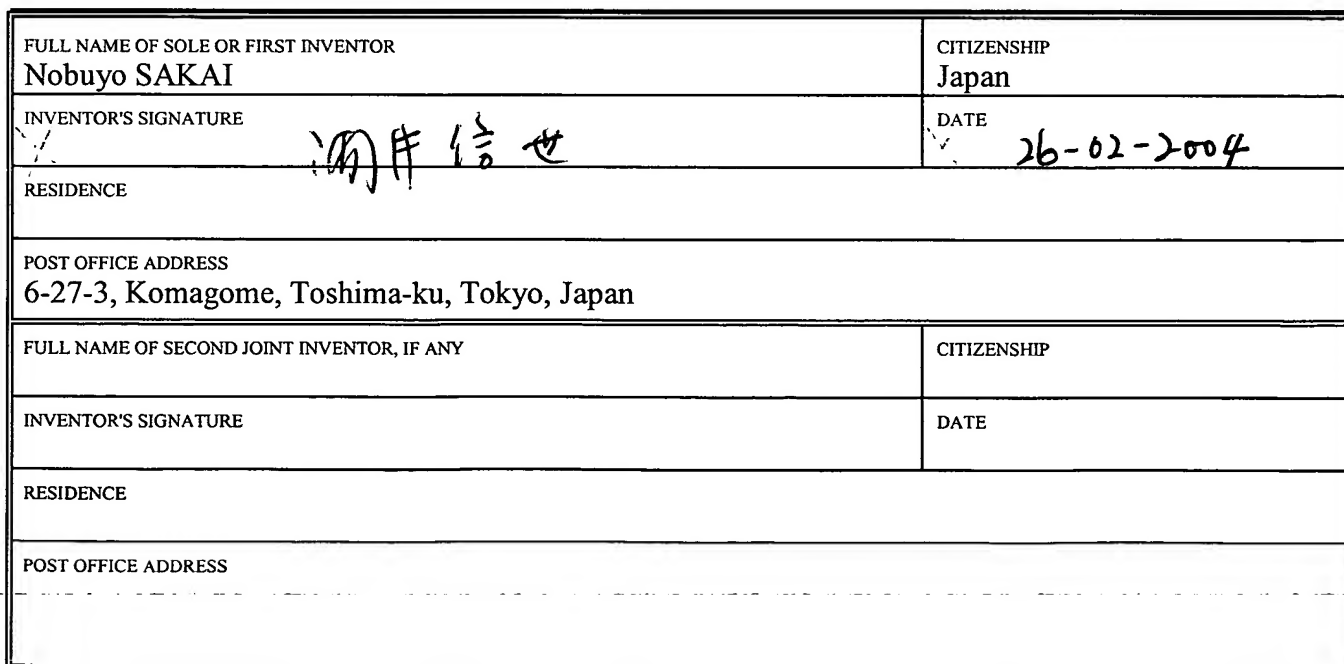 FULL NAME OF SOLE OR FIRST INVENTOR
Nobuyo SAKAI
CITIZENSHIP
Japan
INVENTOR'S SIGNATURE
酒井信世
DATE
26-02-2004
RESIDENCE
POST OFFICE ADDRESS
6-27-3, Komagome, Toshima-ku, Tokyo, Japan
FULL NAME OF SECOND JOINT INVENTOR, IF ANY
CITIZENSHIP
INVENTOR'S SIGNATURE
DATE
RESIDENCE
POST OFFICE ADDRESS